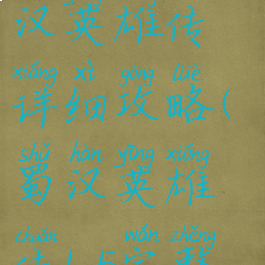 汉英雄传
xiáng xì gōng lüè
详细攻略(
shǔ hàn yīng xióng
蜀汉英雄
chuán wán zhěng